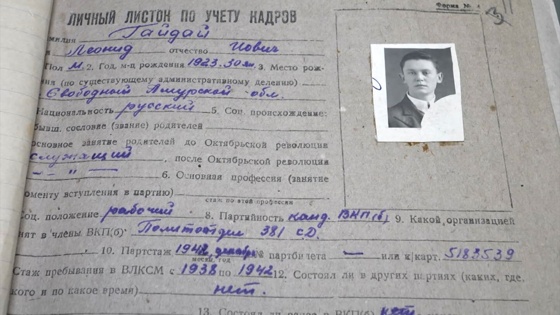 Форма №
ЛИЧНЫЙ ЛИСТОК ПО УЧЕТУ КАДРОВ
милия Гайдай
Леонид отчество Иович
Пол М. 2. Год, м-ц рождения 1923. 30 ян. 3. Место рож-
ния (по существующему административному делению)
Свободной Амурской обл.
Национальность русский 5. Соц. происхождение:
бывш. сословие (звание) родителей
основное занятие родителей до Октябрьской революции
служащий, после Октябрьской революции
— " — " 6. Основная профессия (занятие
оменту вступления в партию)
стаж по этой профессии
Соц. положение рабочий 8. Партийность канд. ВКП(б) 9. Какой организацией
нят в члены ВКП(б) Политотдел 381 СД.
10. Партстаж 1942 декабрь партбилета — или к/карт. 5183539
месяц, год
Стаж пребывания в ВЛКСМ с 1938 по 1942 12. Состоял ли в других партиях (каких, где,
кого и по какое время) нет.
13. Состоял ли ранее в ВКП(б) нет